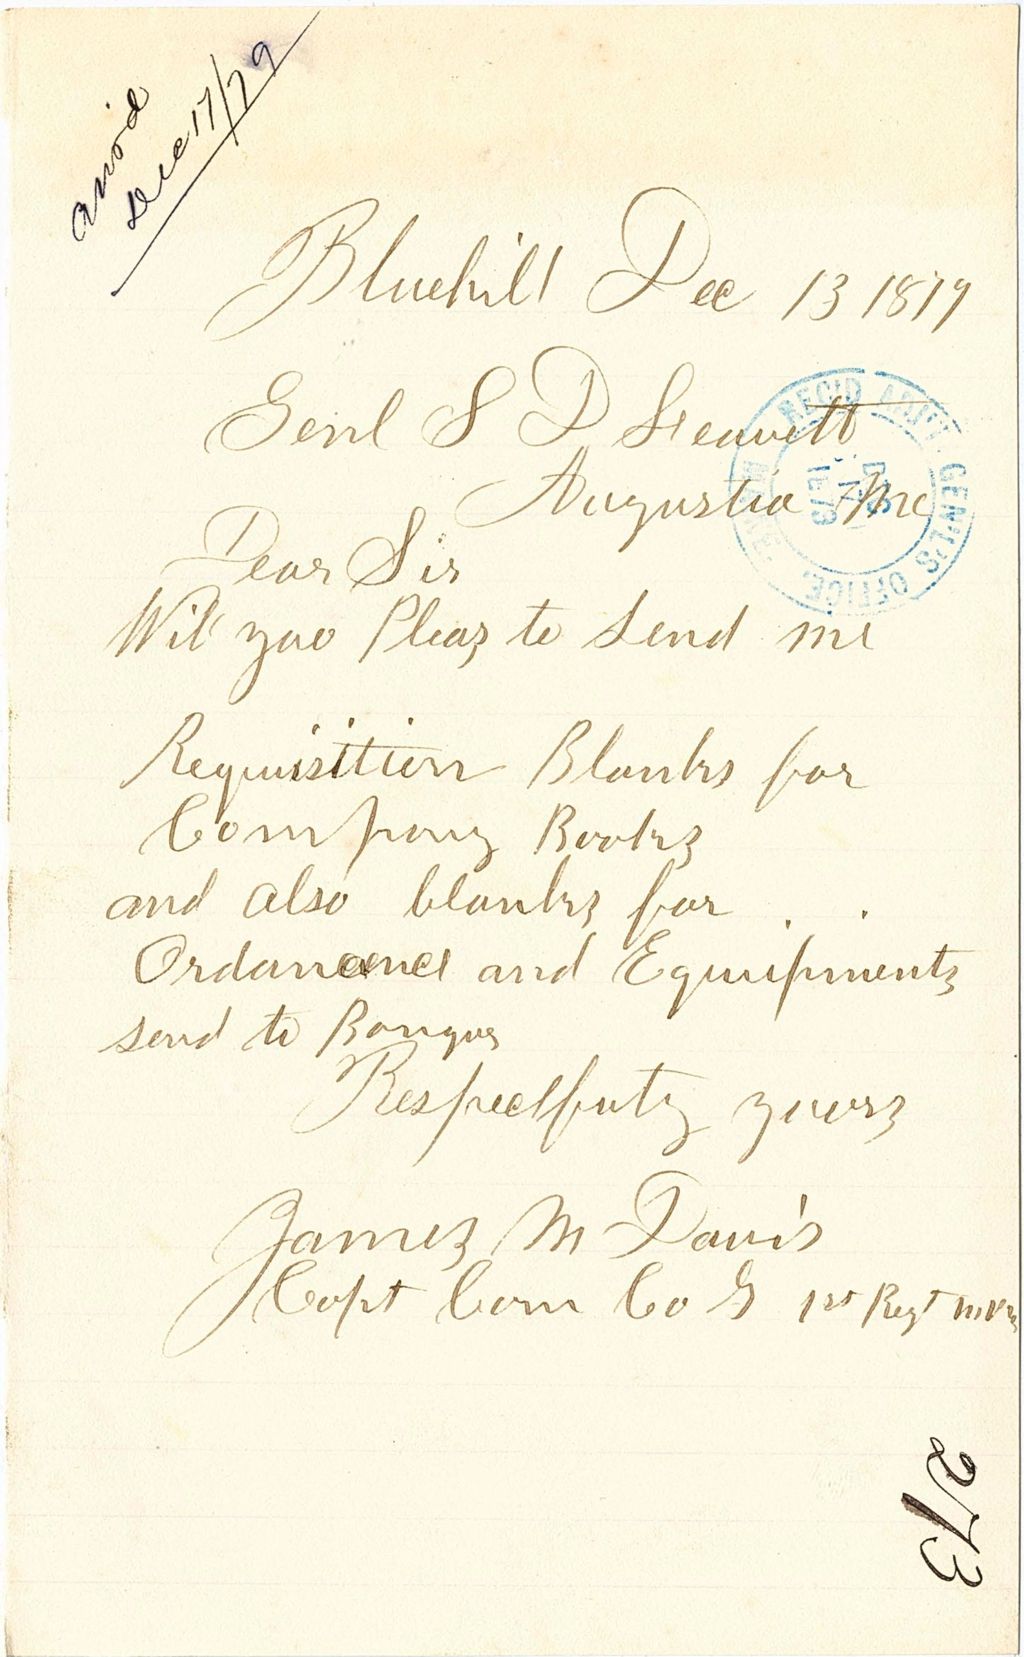 ans'd
Dec 17/79
Bluehill Dec 13 1879
Genl S D Leavett
Augusta Me
REC'D ADJ'T. GEN'L'S OFFICE,
DEC
1879
Dear Sir
Wil you Pleas to send me
Requisition Blanks for
Company Books
and also blanks for
Ordanance and Equipments
send to Bangor
Respectfuly yours
James M Davis
Capt Com Co G 1st Regt
2173